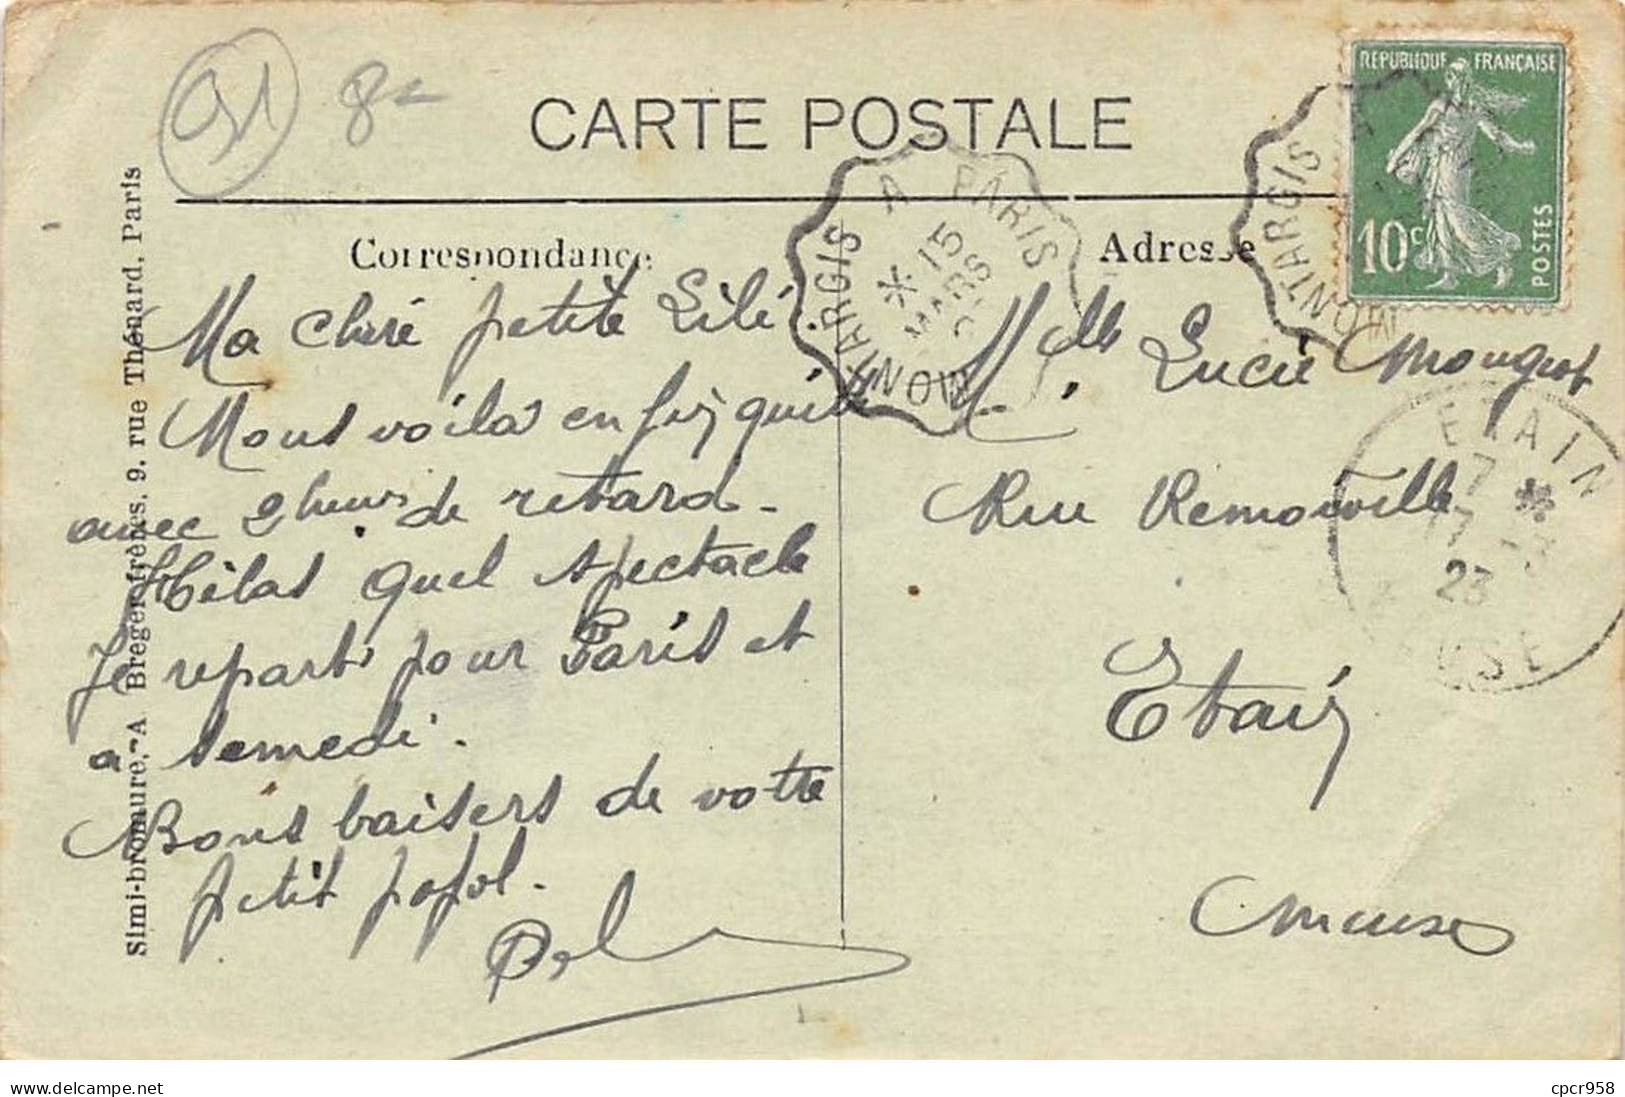 91 8-
CARTE POSTALE
REPUBLIQUE FRANÇAISE
10c POSTES
MONTARGIS A PARIS
* 15
MARS
MONTARGIS A
Correspondance
Adresse
Simi-bromure, A Breger frères, 9, rue Thénard, Paris
Ma chéré petite Lilé
Nous voilà enfin
avec 2 heures de retard.
Hélas quel spectacle
Je repart pour Paris et
a semedi.
Bons baisers de votre
petit popol.
Pol
Melle Lucie Mougeot
Rue Remouville
Etain
Meuse
ETAIN
7 *
17 -3
23
MEUSE
delcampe.net
cpcr958